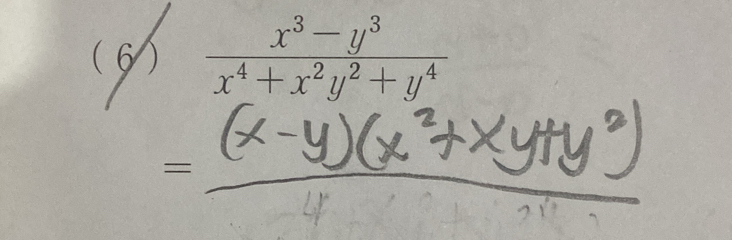 (6) x³ − y³
x⁴ + x²y² + y⁴
= (x-y)(x²+xy+y²)